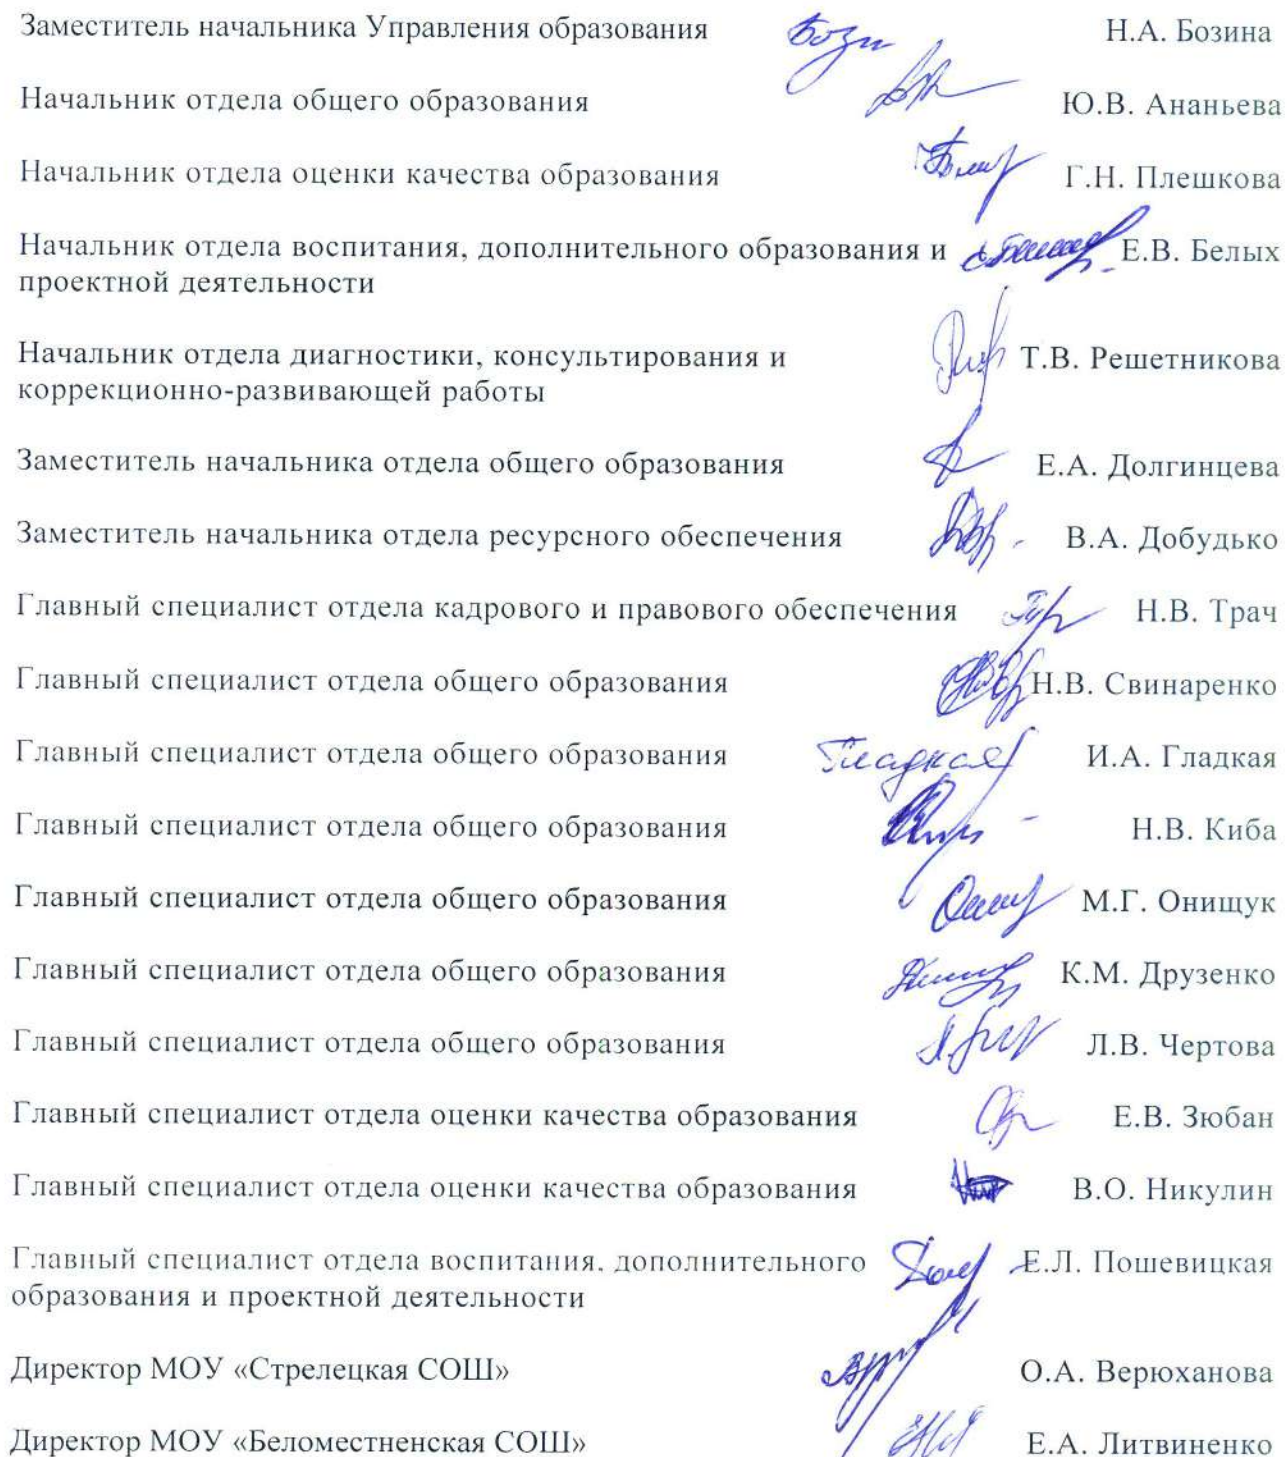 Заместитель начальника Управления образования Бози Н.А. Бозина
Начальник отдела общего образования Ю.В. Ананьева
Начальник отдела оценки качества образования Г.Н. Плешкова
Начальник отдела воспитания, дополнительного образования и Е.В. Белых
проектной деятельности
Начальник отдела диагностики, консультирования и Т.В. Решетникова
коррекционно-развивающей работы
Заместитель начальника отдела общего образования Е.А. Долгинцева
Заместитель начальника отдела ресурсного обеспечения В.А. Добудько
Главный специалист отдела кадрового и правового обеспечения Н.В. Трач
Главный специалист отдела общего образования Н.В. Свинаренко
Главный специалист отдела общего образования Гладкая И.А. Гладкая
Главный специалист отдела общего образования Н.В. Киба
Главный специалист отдела общего образования М.Г. Онищук
Главный специалист отдела общего образования К.М. Друзенко
Главный специалист отдела общего образования Л.В. Чертова
Главный специалист отдела оценки качества образования Е.В. Зюбан
Главный специалист отдела оценки качества образования В.О. Никулин
Главный специалист отдела воспитания, дополнительного Е.Л. Пошевицкая
образования и проектной деятельности
Директор МОУ «Стрелецкая СОШ» О.А. Верюханова
Директор МОУ «Беломестненская СОШ» Е.А. Литвиненко